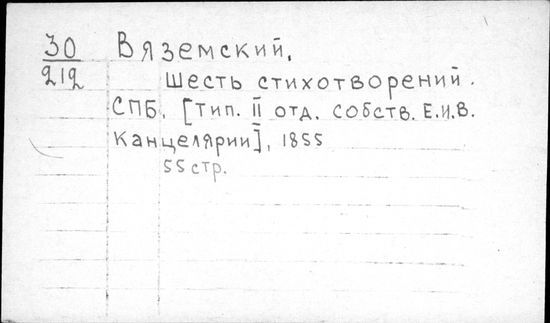 30
212
Вяземский,
Шесть стихотворений.
СПБ, [Тип. II отд. собств. Е.И.В.
Канцелярии], 1855
55 стр.